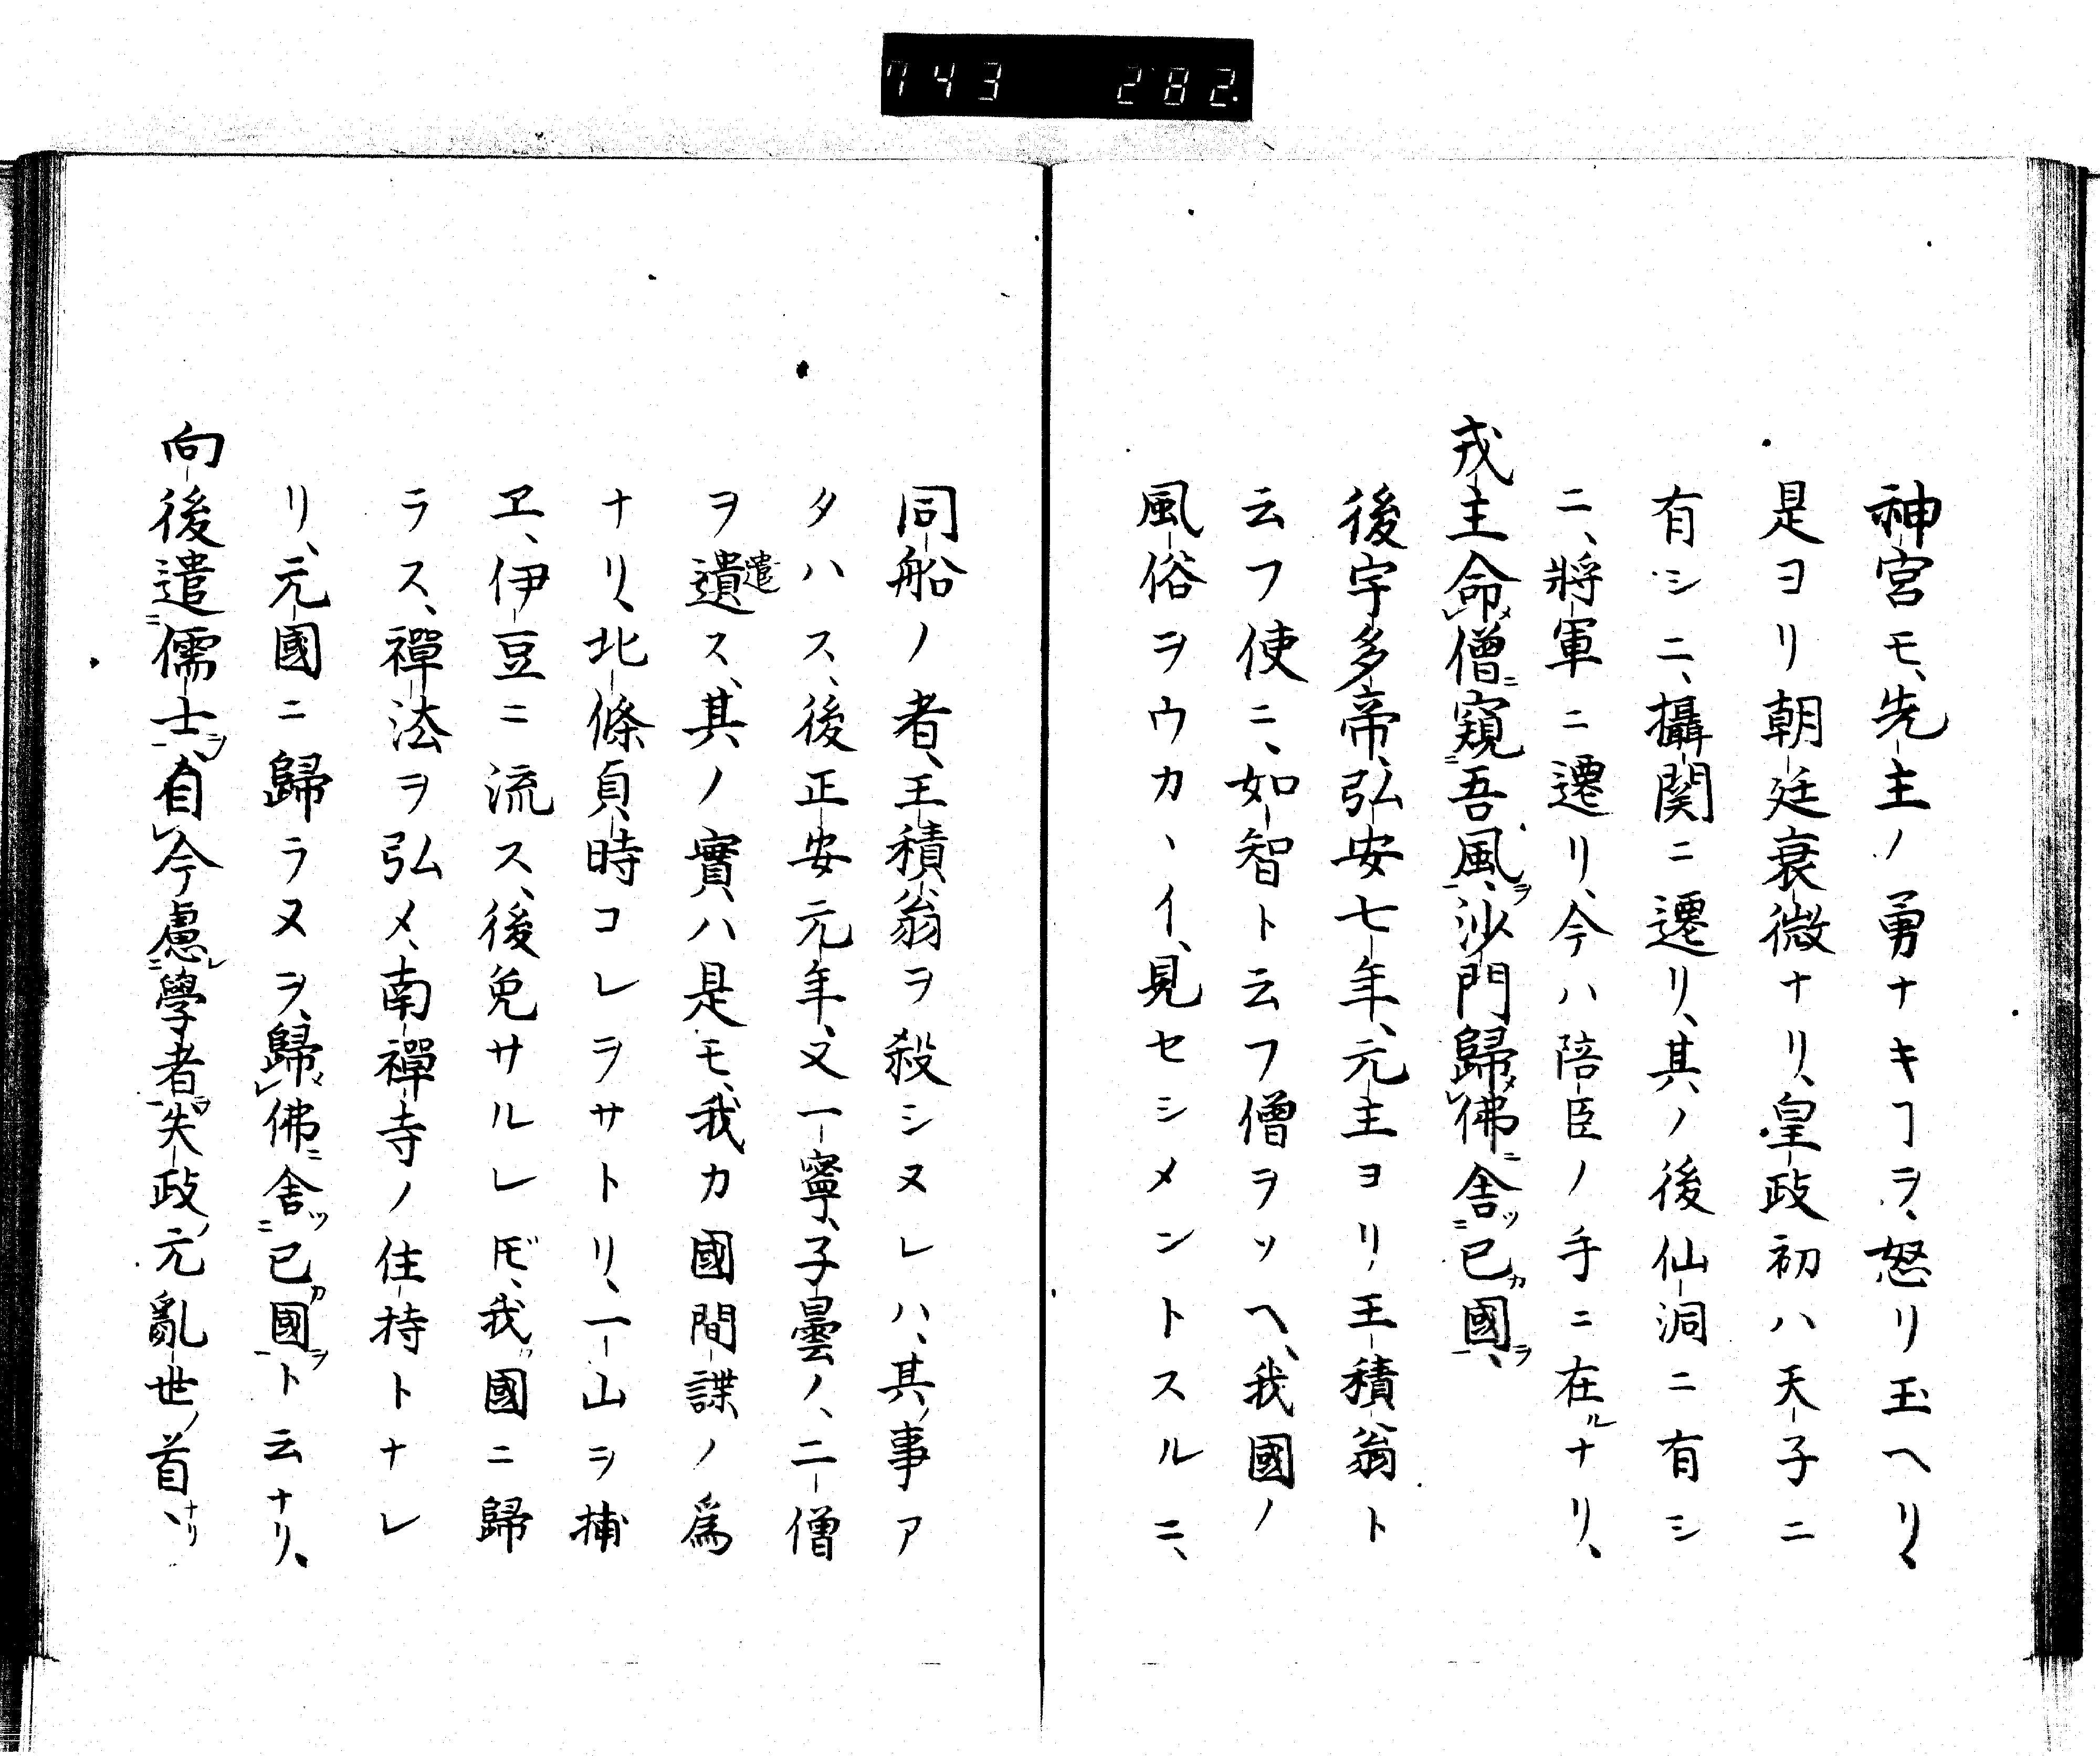 743 282.
神宮モ、先主ノ勇ナキヿヲ、怒リ玉ヘリ、
是ヨリ朝廷衰微ナリ、皇政初ハ天子ニ
有シニ、攝関ニ遷リ、其ノ後仙洞ニ有シ
ニ、將軍ニ遷リ、今ハ陪臣ノ手ニ在ルナリ、
戎主命メ㆑僧ニ窺㆓吾風ヲ㆒、沙門歸メ㆑佛ニ舎ツ㆓已カ國ヲ㆒、
後宇多帝、弘安七年、元主ヨリ王積翁ト
云フ使ニ、如智ト云フ僧ヲソヘ、我國ノ
風俗ヲウカヽイ、見セシメントスルニ、
同船ノ者、王積翁ヲ殺シヌレハ、其ノ事ア
タハス、後正安元年、又一寧、子曇ノ、二僧
ヲ遺遣ス、其ノ實ハ是モ、我カ國間諜ノ爲
ナリ、北條貞時コレヲサトリ、一山ヲ捕
ヱ、伊豆ニ流ス、後免サルレ𪜈、我カ國ニ歸
ラス、禪法ヲ弘メ、南禪寺ノ住持トナレ
リ、元國ニ歸ラヌヲ、歸メ㆑佛ニ舎ツ㆓已カ國ヲ㆒ト云ナリ、
向後遣㆓儒士ヲ㆒自㆑今慮レ㆓學者ヲ㆒失政ノ元亂世ノ首ナリ、